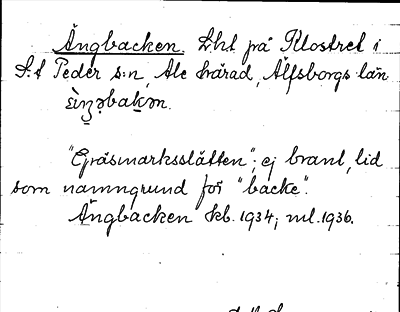 Ängbacken. Lht på Klostret i
S:t Peder s:n, Ale härad, Älfsborgs län
"Gräsmarksslätten"; ej brant lid
som namngrund för "backe".
Ängbacken kb. 1934; ml. 1936.